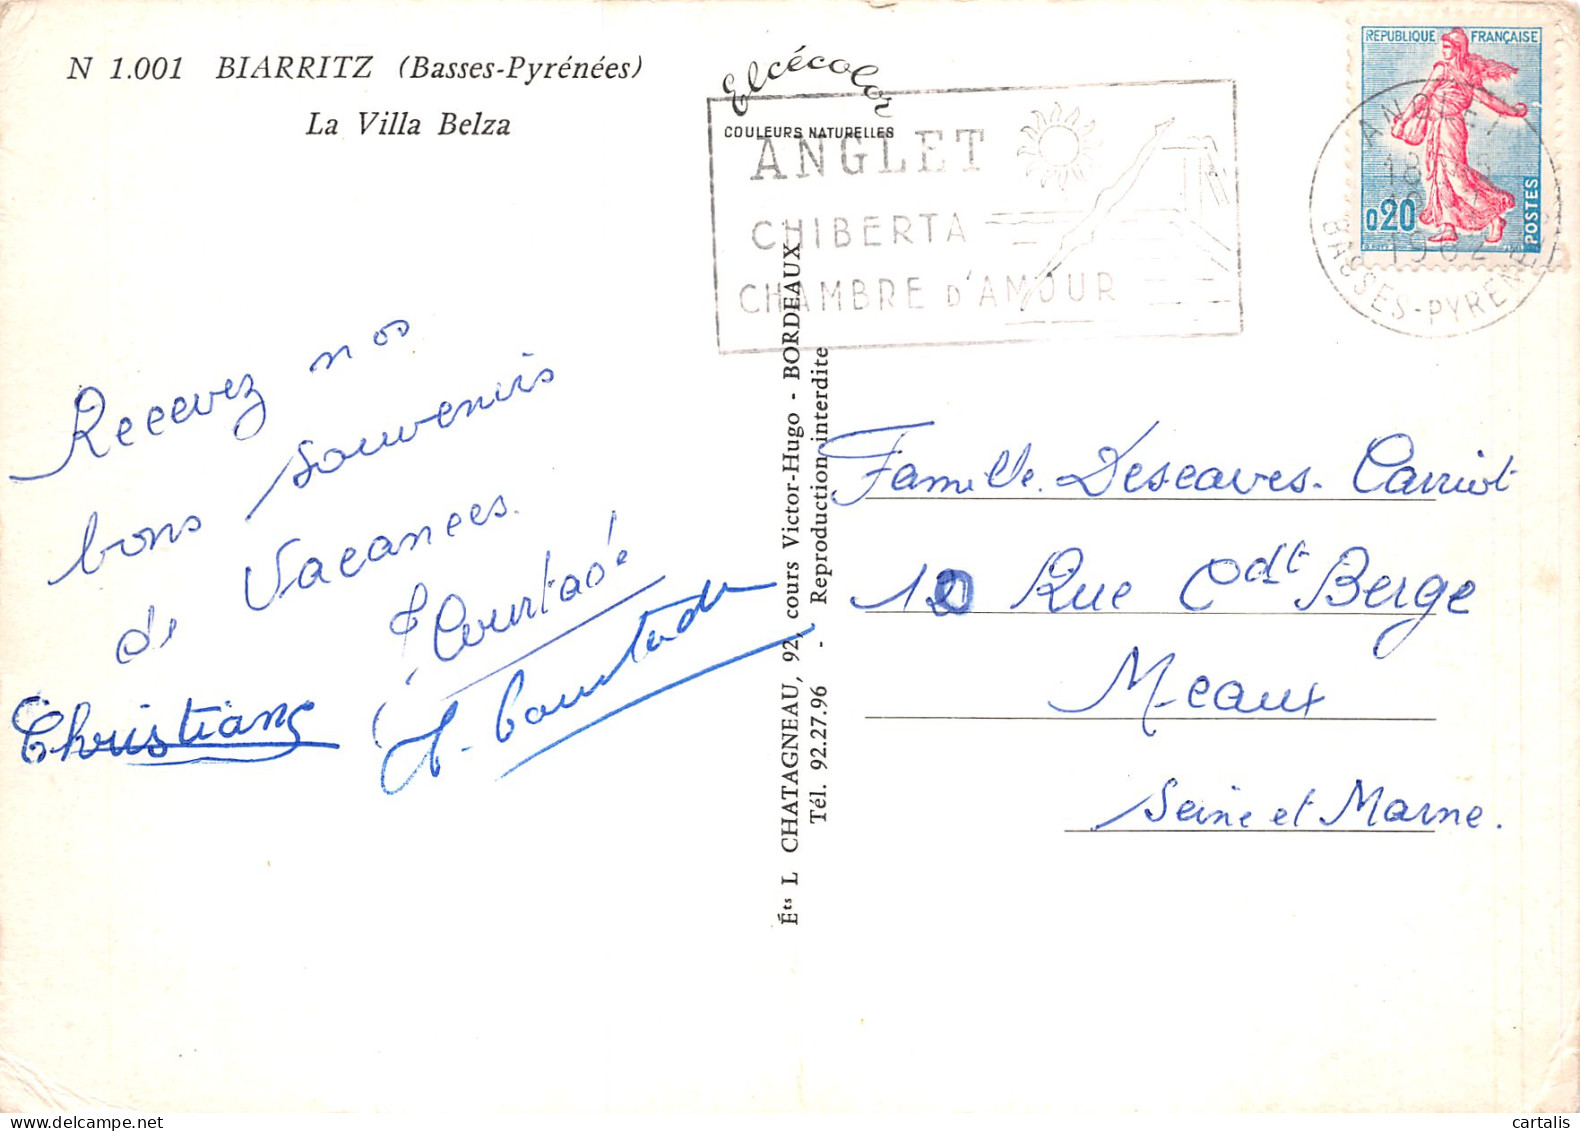 N 1.001 BIARRITZ (Basses-Pyrénées)
La Villa Belza
Elcécolor
COULEURS NATURELLES
ANGLET
CHIBERTA
CHAMBRE D'AMOUR
REPUBLIQUE FRANÇAISE
0,20
POSTES
ANGLET
18
1962
BASSES-PYRENEES
Recevez nos
bons souvenirs
de Vacances.
Courtade
Christiane
Éts L CHATAGNEAU, 92, cours Victor-Hugo - BORDEAUX
Tél. 92.27.96 - Reproduction interdite
Famille Descaves-Carriot
12 Rue Cdt Berge
Meaux
Seine et Marne.
cartalis